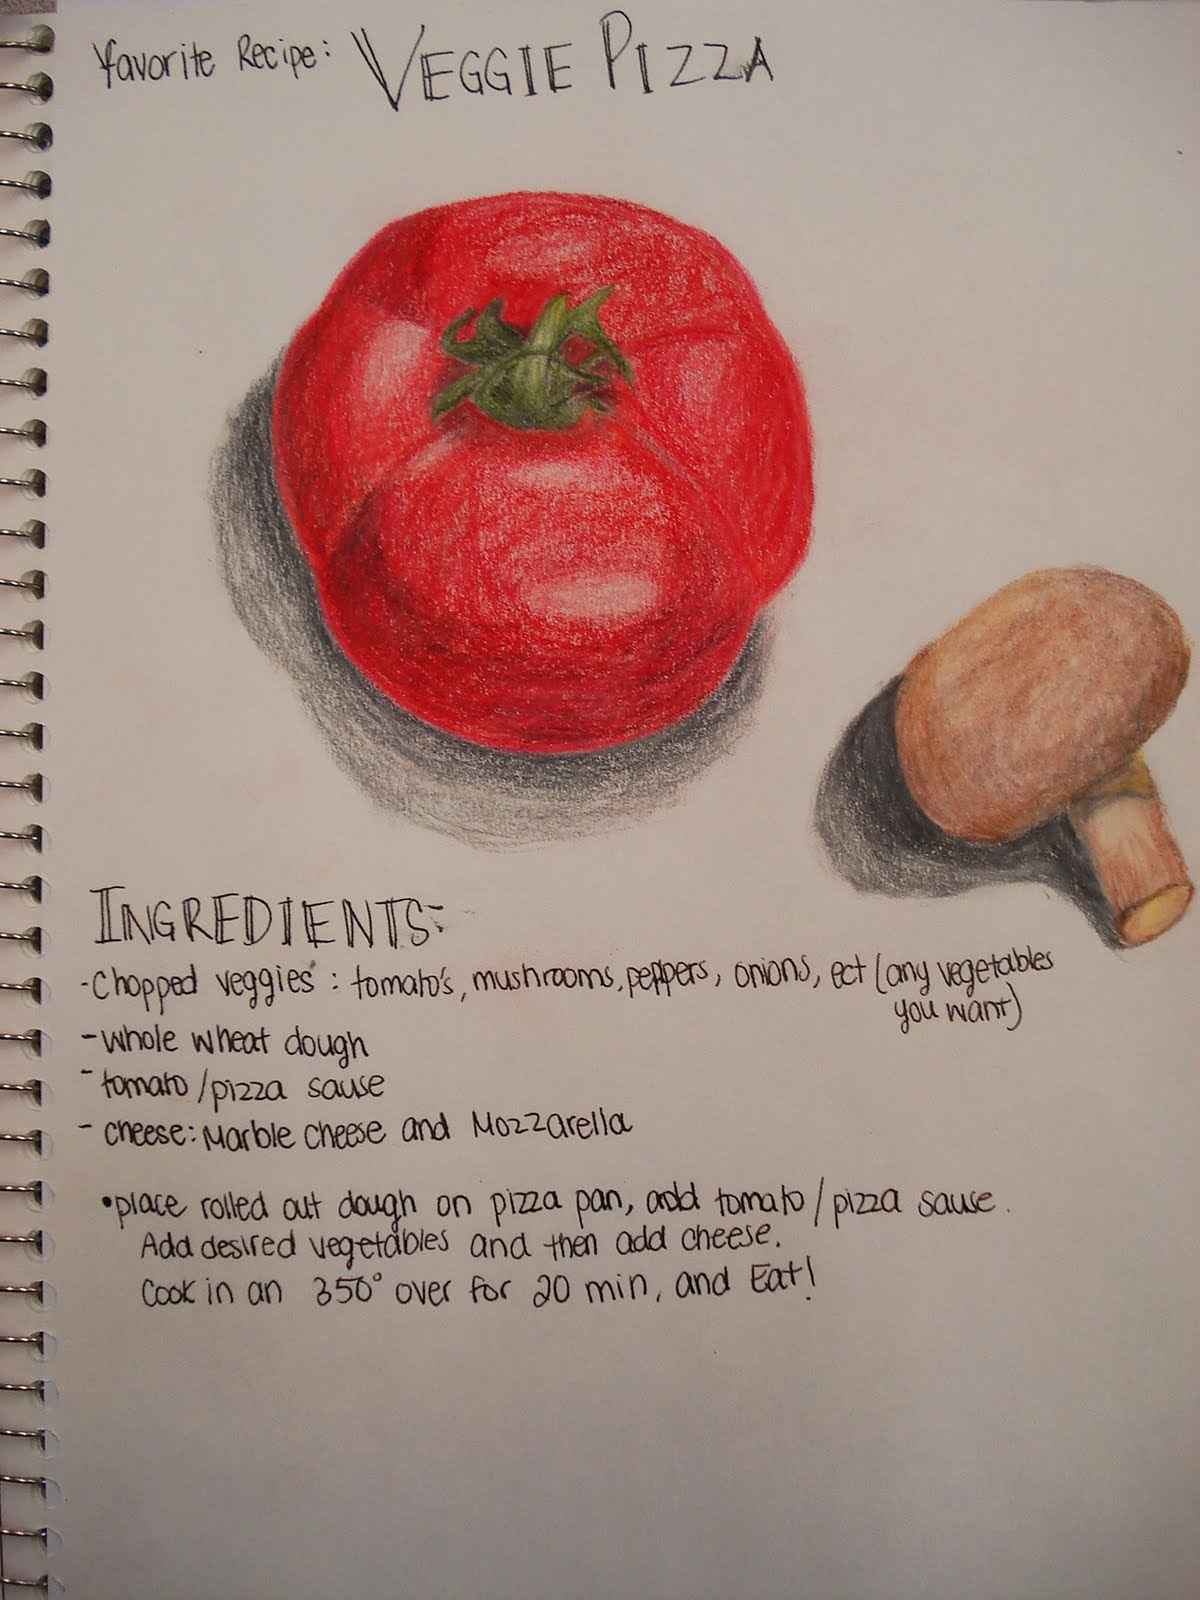 Favorite Recipe: VEGGIE PIZZA
INGREDIENTS:
-Chopped veggies: tomato's, mushrooms, peppers, onions, ect (any vegetables
you want)
-whole wheat dough
-tomato/pizza sause
-cheese: Marble cheese and Mozzarella
•place rolled out dough on pizza pan, add tomato/pizza sause.
Add desired vegetables and then add cheese.
Cook in an 350° over for 20 min, and Eat!